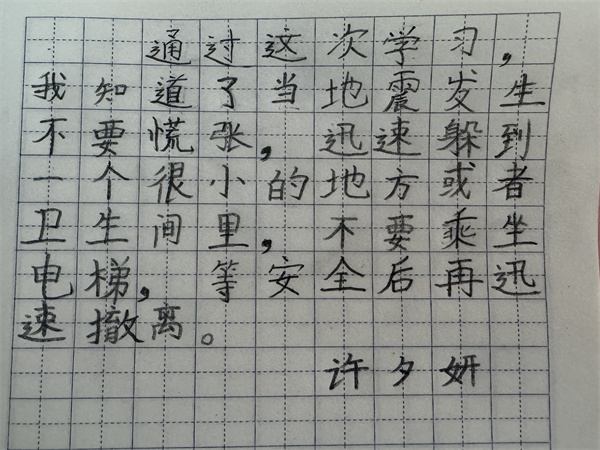 通过这次学习，
我知道了当地震发生
不要慌张，迅速躲到
一个很小的地方或者
卫生间里，不要乘坐
电梯，等安全后再迅
速撤离。
许夕妍